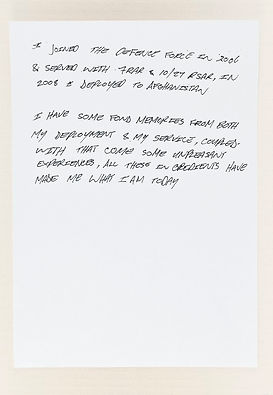 I JOINED THE DEFENCE FORCE IN 2006
& SERVED WITH 7RAR & 10/27 RSAR, IN
2008 I DEPLOYED TO AFGHANISTAN
I HAVE SOME FOND MEMORIES FROM BOTH
MY DEPLOYMENT & MY SERVICE, COUPLED
WITH THAT COME SOME UNPLEASANT
EXPERIENCES, ALL THESE INGREDIENTS HAVE
MADE ME WHAT I AM TODAY